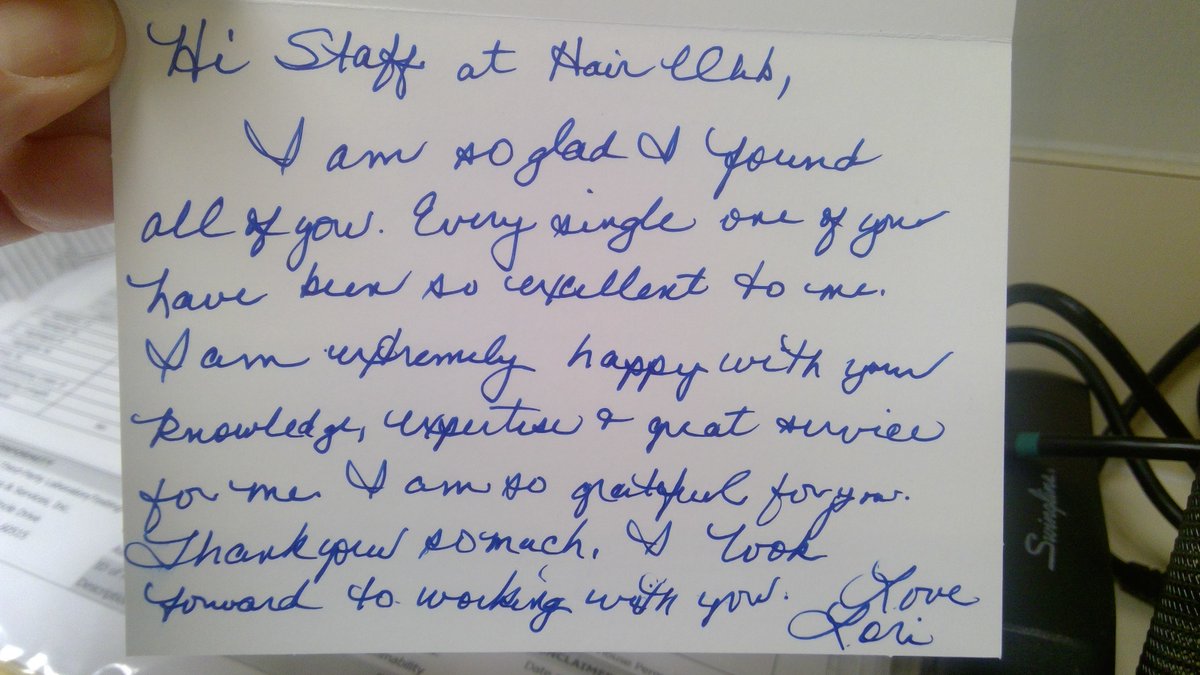 Hi Staff at Hair Club,
I am so glad I found
all of you. Every single one of you
have been so excellent to me.
I am extremely happy with your
knowledge, expertise & great service
for me. I am so grateful for you.
Thank you so much. I look
forward to working with you. Love
Lori
Swingline